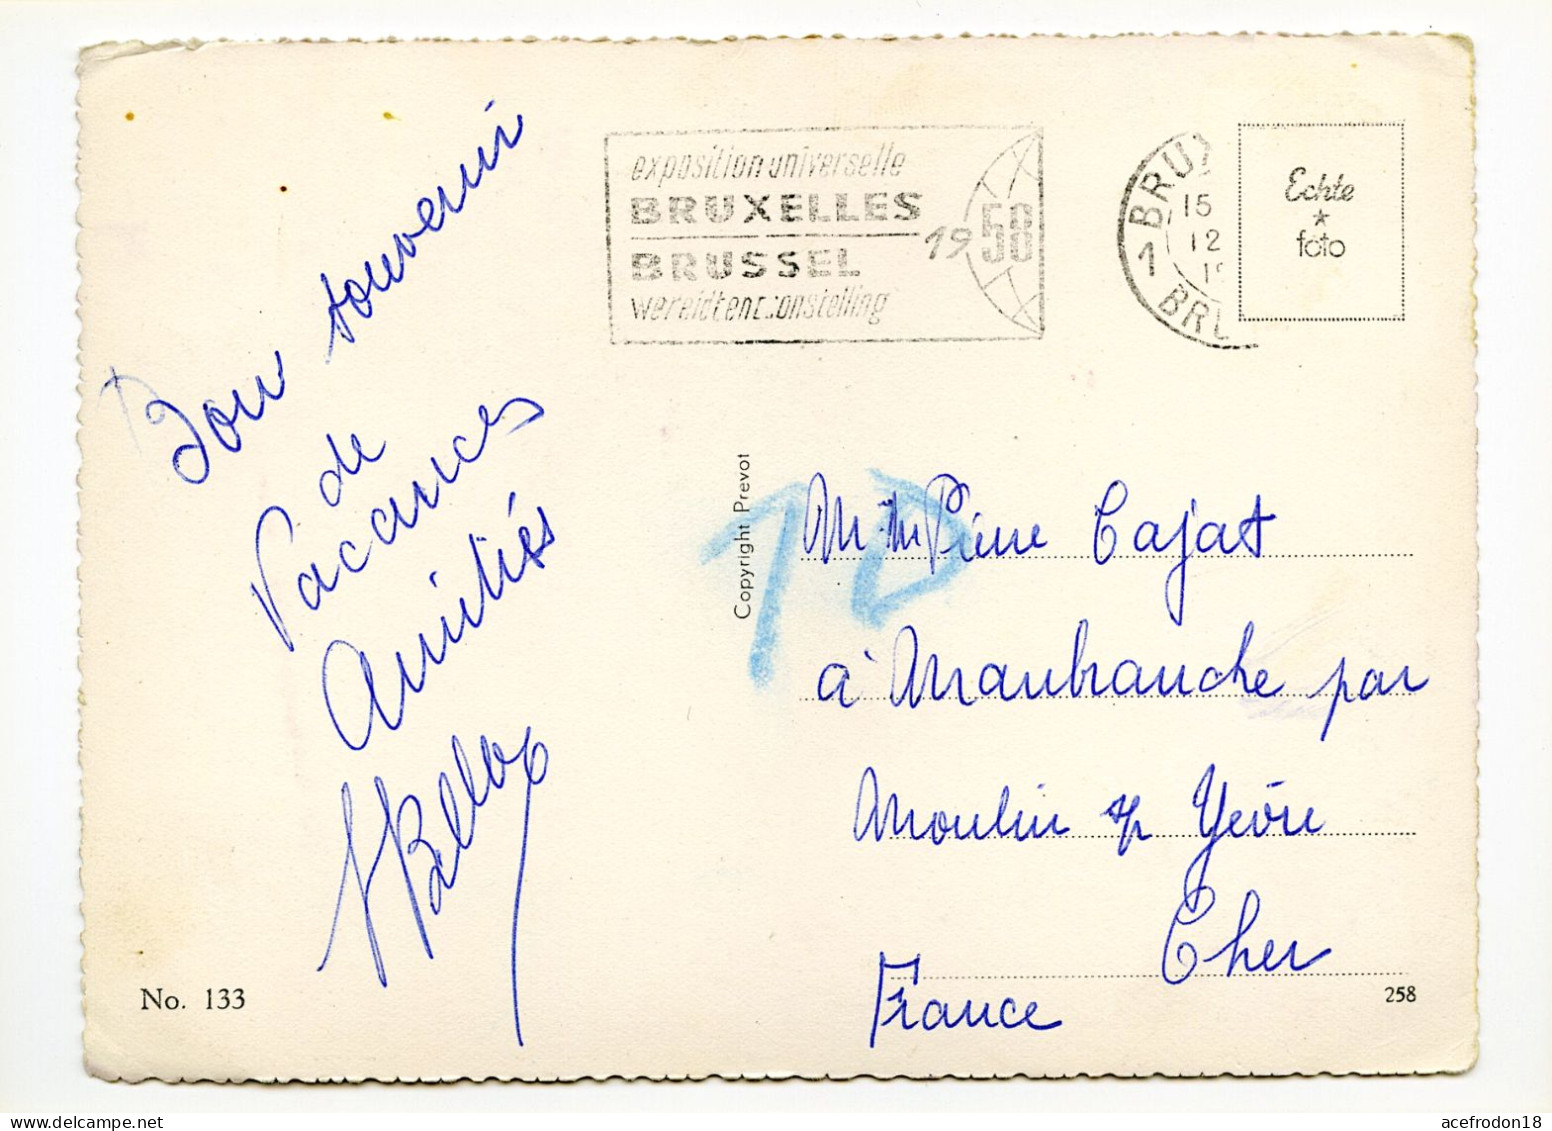 Bon souvenir
de
Vacances
Amitiés
exposition universelle
BRUXELLES
BRUSSEL
wereldtentoonstelling
1958
1 BRUX
15
12
BRU
Echte
★
foto
Copyright Prevot
TD
M. Mme Pierre Cajat
à Maubranche par
Moulin s/ Yèvre
Cher
France
No. 133
258
acefrodon18